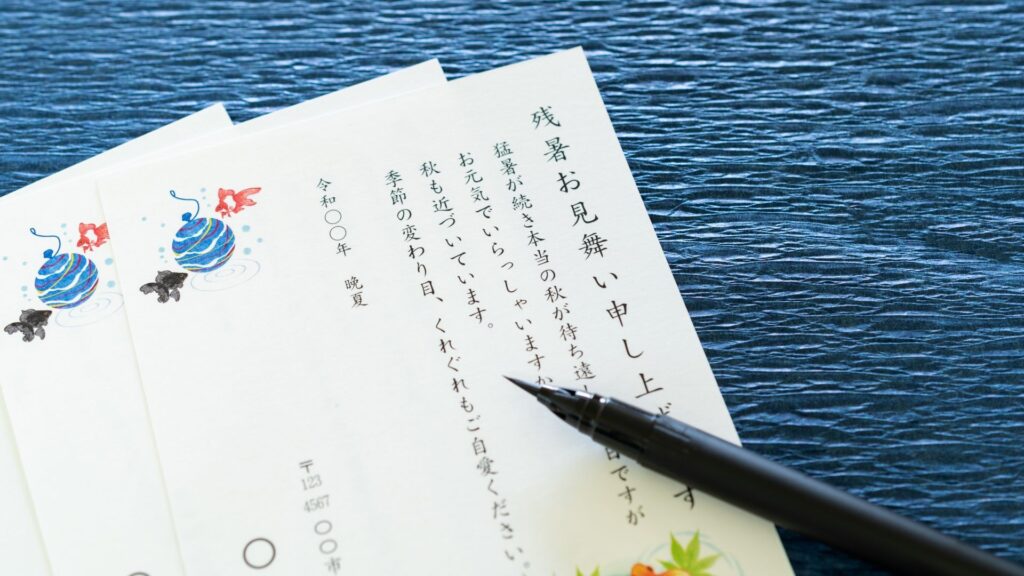 残暑お見舞い申し上げます
猛暑が続き本当の秋が待ち遠しい毎日ですが
お元気でいらっしゃいますか
秋も近づいています。
季節の変わり目、くれぐれもご自愛ください。
令和〇〇年　晩夏
〒123 4567 〇〇市
〇